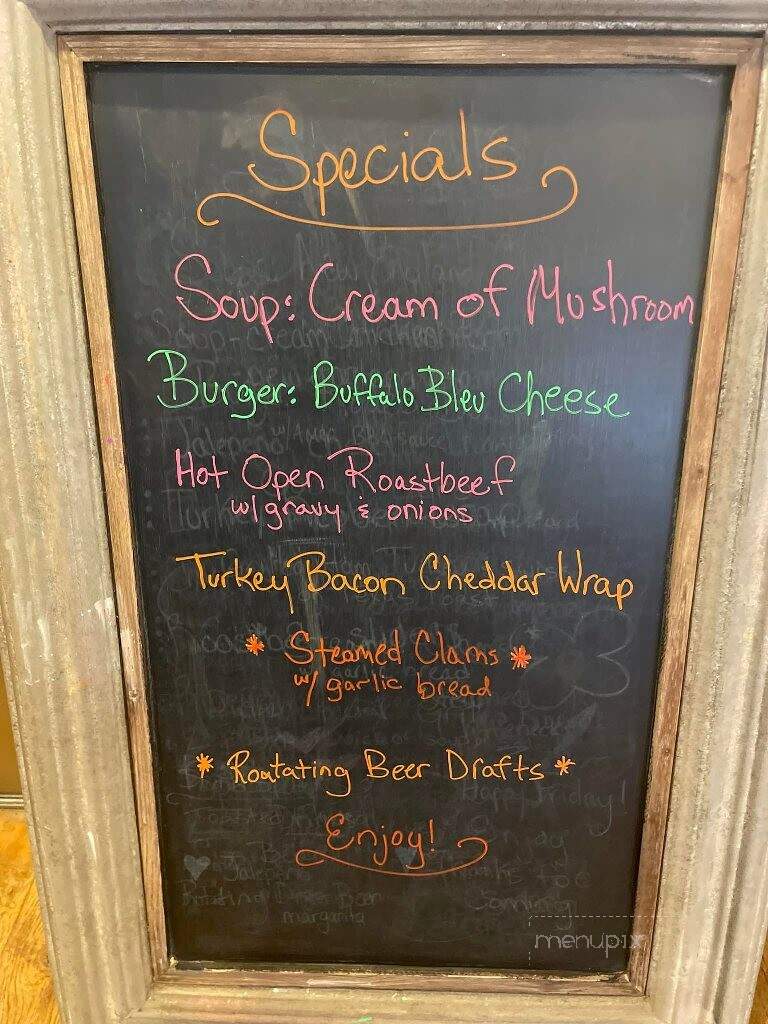 Specials
Soup: Cream of Mushroom
Burger: Buffalo Bleu Cheese
Hot Open Roastbeef
w/ gravy & onions
Turkey Bacon Cheddar Wrap
* Steamed Clams *
w/ garlic bread
* Roatating Beer Drafts *
Enjoy!
Happy Friday!
Jalapeno
margarita
menupix